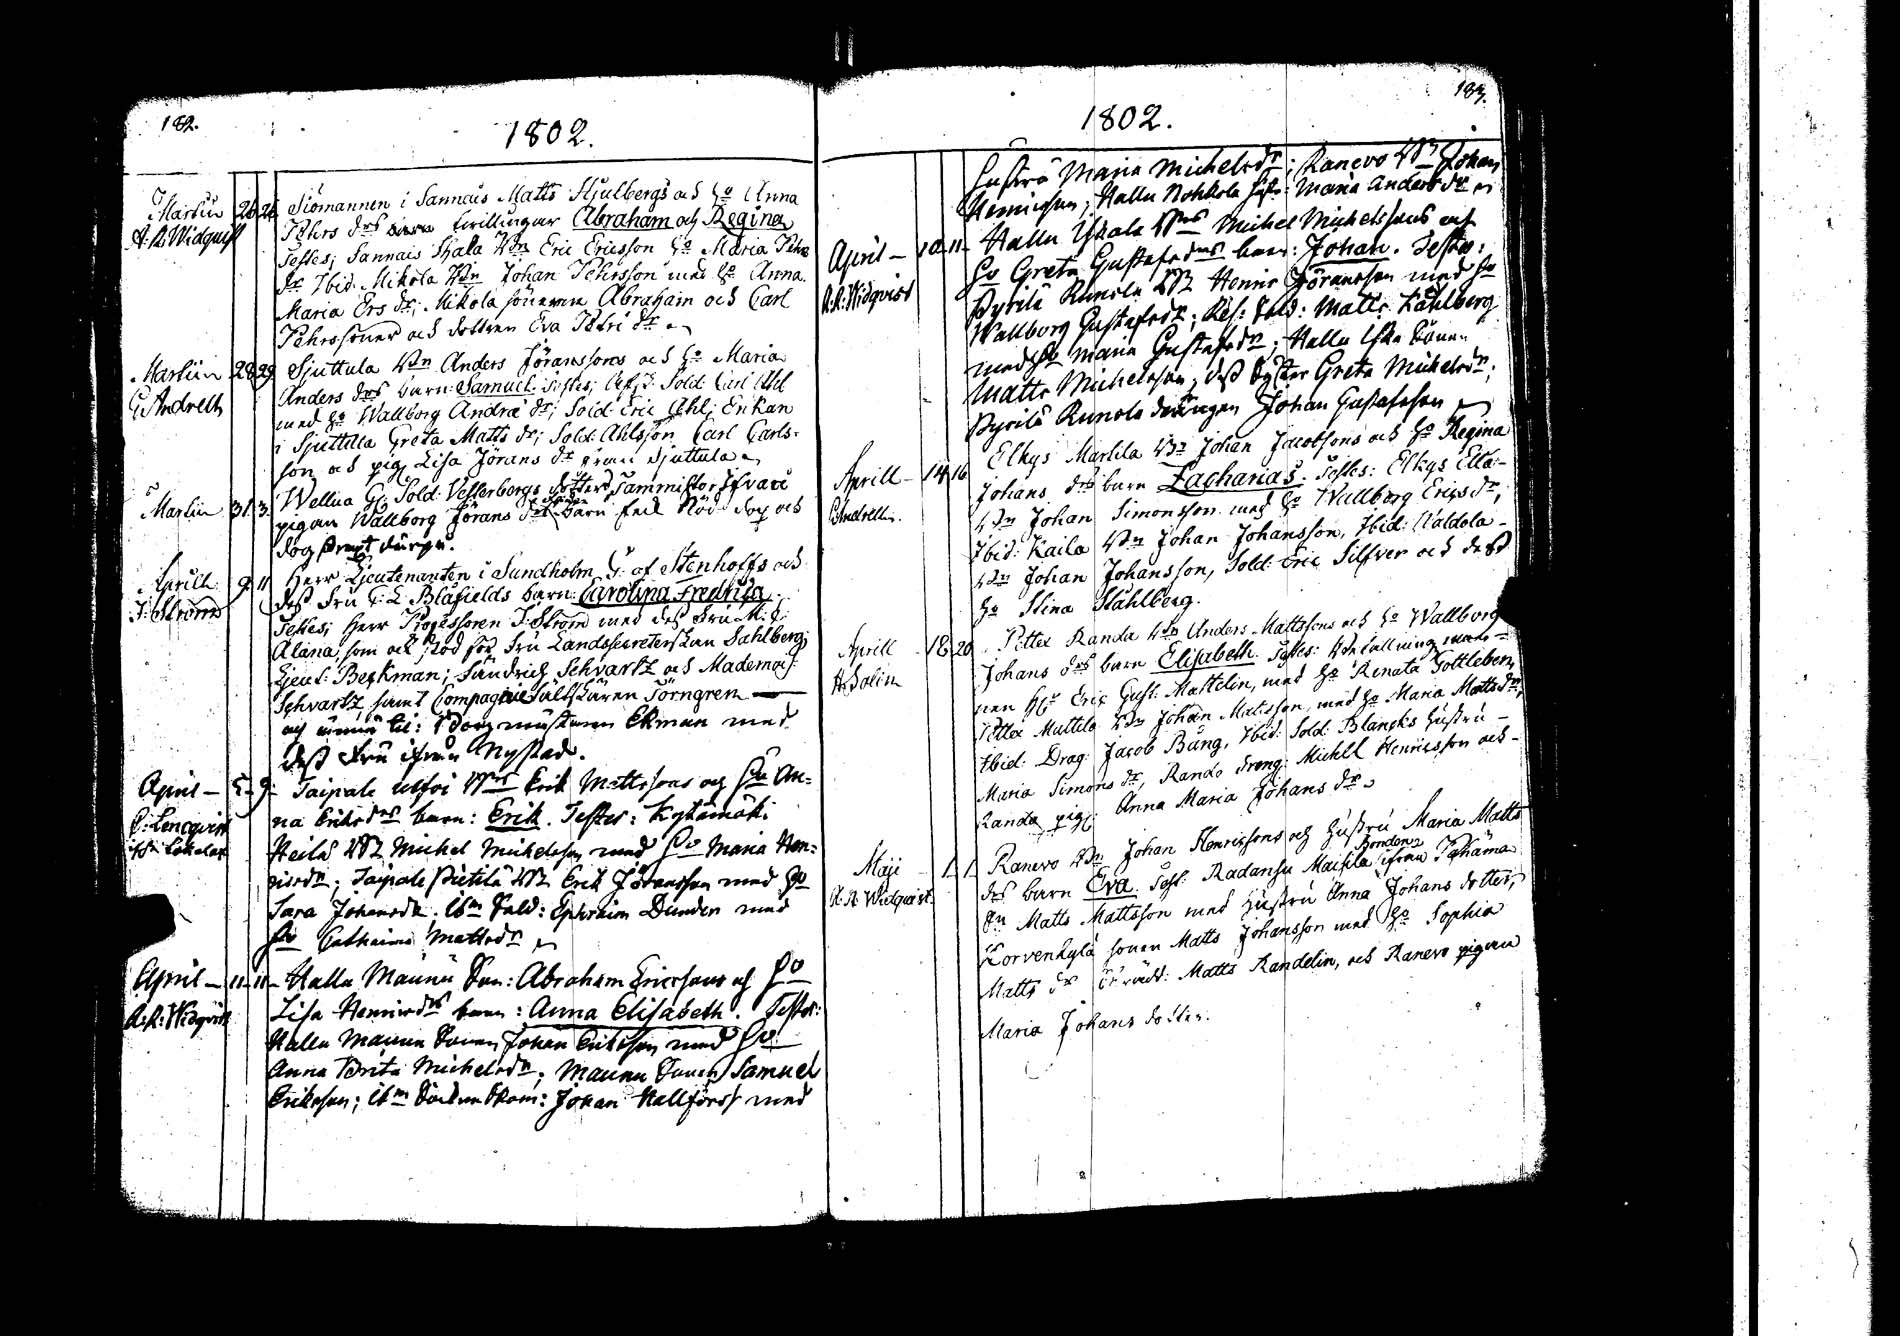 182.
1802.
Martii 26 26 Siömannen i Sannais Matts Hjulbergs och Ho Anna
A: R: Widquist Pehrs drs tvillingar Abraham och Regina
Testes; Sannais Skala Bdn Eric Ericsson Ho Maria Pehrs
dr Ibid. Mikola Bdn Johan Pehrsson med Ho Anna
Maria Ers dr; Mikola sönerna Abraham och Carl
Pehrssöner och dottren Eva Petri dr
Martii 28 29 Sjuttula Bdn Anders Jöranssons och Ho Maria
G. Andrell Anders drs barn: Samuel. Testes; Sold: Carl Ahl
med Ho Wallborg Andræ dr; Sold: Eric Ahl; Enkan
i Sjuttula Greta Matts dr; Sold: Ahlsson Carl Carls-
son och pig. Lisa Jörans dr ifrån Sjuttula
Martii 31 3. Wellua G: Sold: Vesterbergs dotters, Sammisto
pigan Wallborg Jörans drs barn fick Nöd dop och
dog
Aprill 9 11 Herr Lieutenanten i Sundholm G: af Stenhoffs och
J: Ström dess Fru C: E Blåfields barn: Carolina Fredrica.
Testes; Herr Professoren J: Ström med des Fru M: C:
Alana, som ock stod för Fru Landssecreterskan Sahlberg;
Lieut: Berkman; Schvartz och Mademois:
Schvartz, samt Compagnie Fältskären Törngren
och Borgmästaren Ekman med
dess Fru ifrån Nystad.
April - 5 - 9 - Taipale Ulfoi Bdns Erik Mattssons och Ho An-
C: Lencqvist na Eriksdrs barn: Erik. Testes: Kytämäki
Heilä Bd Michel Michelsson med Ho Maria Hen-
ricsdr; Taipale Pietilä Bd Erik Jöransson med Ho
Sara Johansdr. Ibm Sold: Ephraim Dunder med
Ho Catharina Mattsdr
April - 11 - 11 - Hallu Maunu Son: Abraham Ericssons och Ho
A: R: Widqvist Lisa Henricsdrs barn: Anna Elisabeth. Testes:
Hallu Maunu Sonen Johan Eriksson med Ho
Anna Brita Michelsdr; Maunu Sonen Samuel
Eriksson; Ibm Johan Hallfors med
183.
1802.
Hustru Maria Michelsdr; Ranevo Bdn Johan
Henricsson; Hallu Nohkola Hust: Maria Andersdr
April - 10 - 11 - Hallu Yskala Bdns Michel Michelssons och
A: R: Widqvist Ho Greta Gustafsdrs barn: Johan. Testes:
Pyrilä Runola Bd Henric Jöransson med Ho
Wallborg Gustafsdr; Res: Sold: Matts Kåhlberg
med Ho Maria Gustafsdr; Hallu Sonen
Matts Michelsson, dess Syster Greta Michelsdr;
Pyrilä Runola drängen Johan Gustafsson
Aprill - 14 16 Elkys Markila Bdn Johan Jacobssons och Ho Regina
G: Andrell. Johans drs barn Zacharias. Testes: Elkys Ella-
Bdn Johan Simonsson med Ho Wallborg Erics dr,
Ibid: Kaila Bdn Johan Johansson, Ibid: Valdola-
Bdn Johan Johansson, Sold: Eric Silfver och dess
Ho Stina Ståhlberg.
Aprill - 18. 20 Pittex Randa Bdn Anders Mattssons och Ho Wallborg
H. Salin Johans drs barn Elisabeth. Testes:
nen Hr Eric Gust: Mattelin, med Ho Renata Gottleben,
Pittex Mattila Bdn Johan Mattsson, med Ho Maria Mattsdr,
Ibid: Drag: Jacob Bång, Ibid: Sold: Blancks Hustru -
Maria Simons dr, Randa dreng: Michell Henricsson och -
Randa pig: Anna Maria Johans dr
Maji 1 1 Ranevo Bdn Johan Henricssons och Hustru Maria Matts
A: R: Widquist. drs barn Eva. Test: Radansu Maikila Bonden ifrån Pajhäma
Bn Matts Mattsson med Hustru Anna Johans dotter,
Korvenkylä sonen Matts Johansson med Ho Sophia
Matts dr Matts Randelin, och Ranevo pigan
Maria Johans dotter.